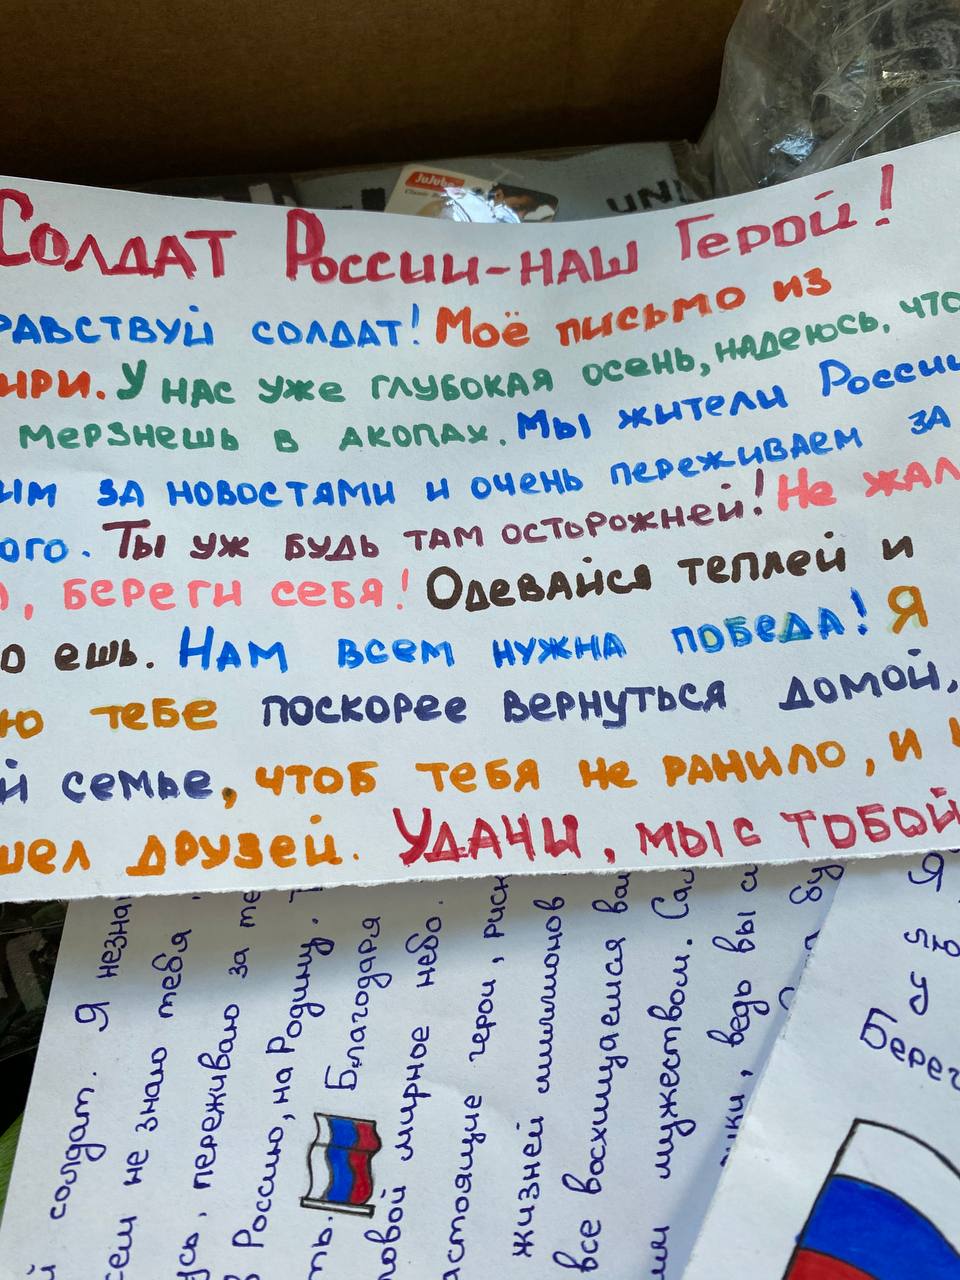 JuJub
Classic
UNI
Солдат России-наш Герой!
равствуй солдат! Моё письмо из
ири. У нас уже глубокая осень, надеюсь, что
мерзнешь в акопах. Мы жители России
ым за новостями и очень переживаем за
ого. Ты уж будь там осторожней! Не жал
, береги себя! Одевайся теплей и
о ешь. Нам всем нужна победа! Я
ю тебе поскорее вернуться домой,
й семье, чтоб тебя не ранило, и
шел друзей. Удачи, мы с тобой
й солдат. Я незна
сем не знаю тебя,
усь, переживаю за те
в Россию, на Родину.
ть. Благодаря
ловой мирное небо.
астоящие герои, риск
жизней миллионов
все восхищаемся ва
им мужеством. Са
уки, ведь вы с
бу
Я
лю
У
Берег